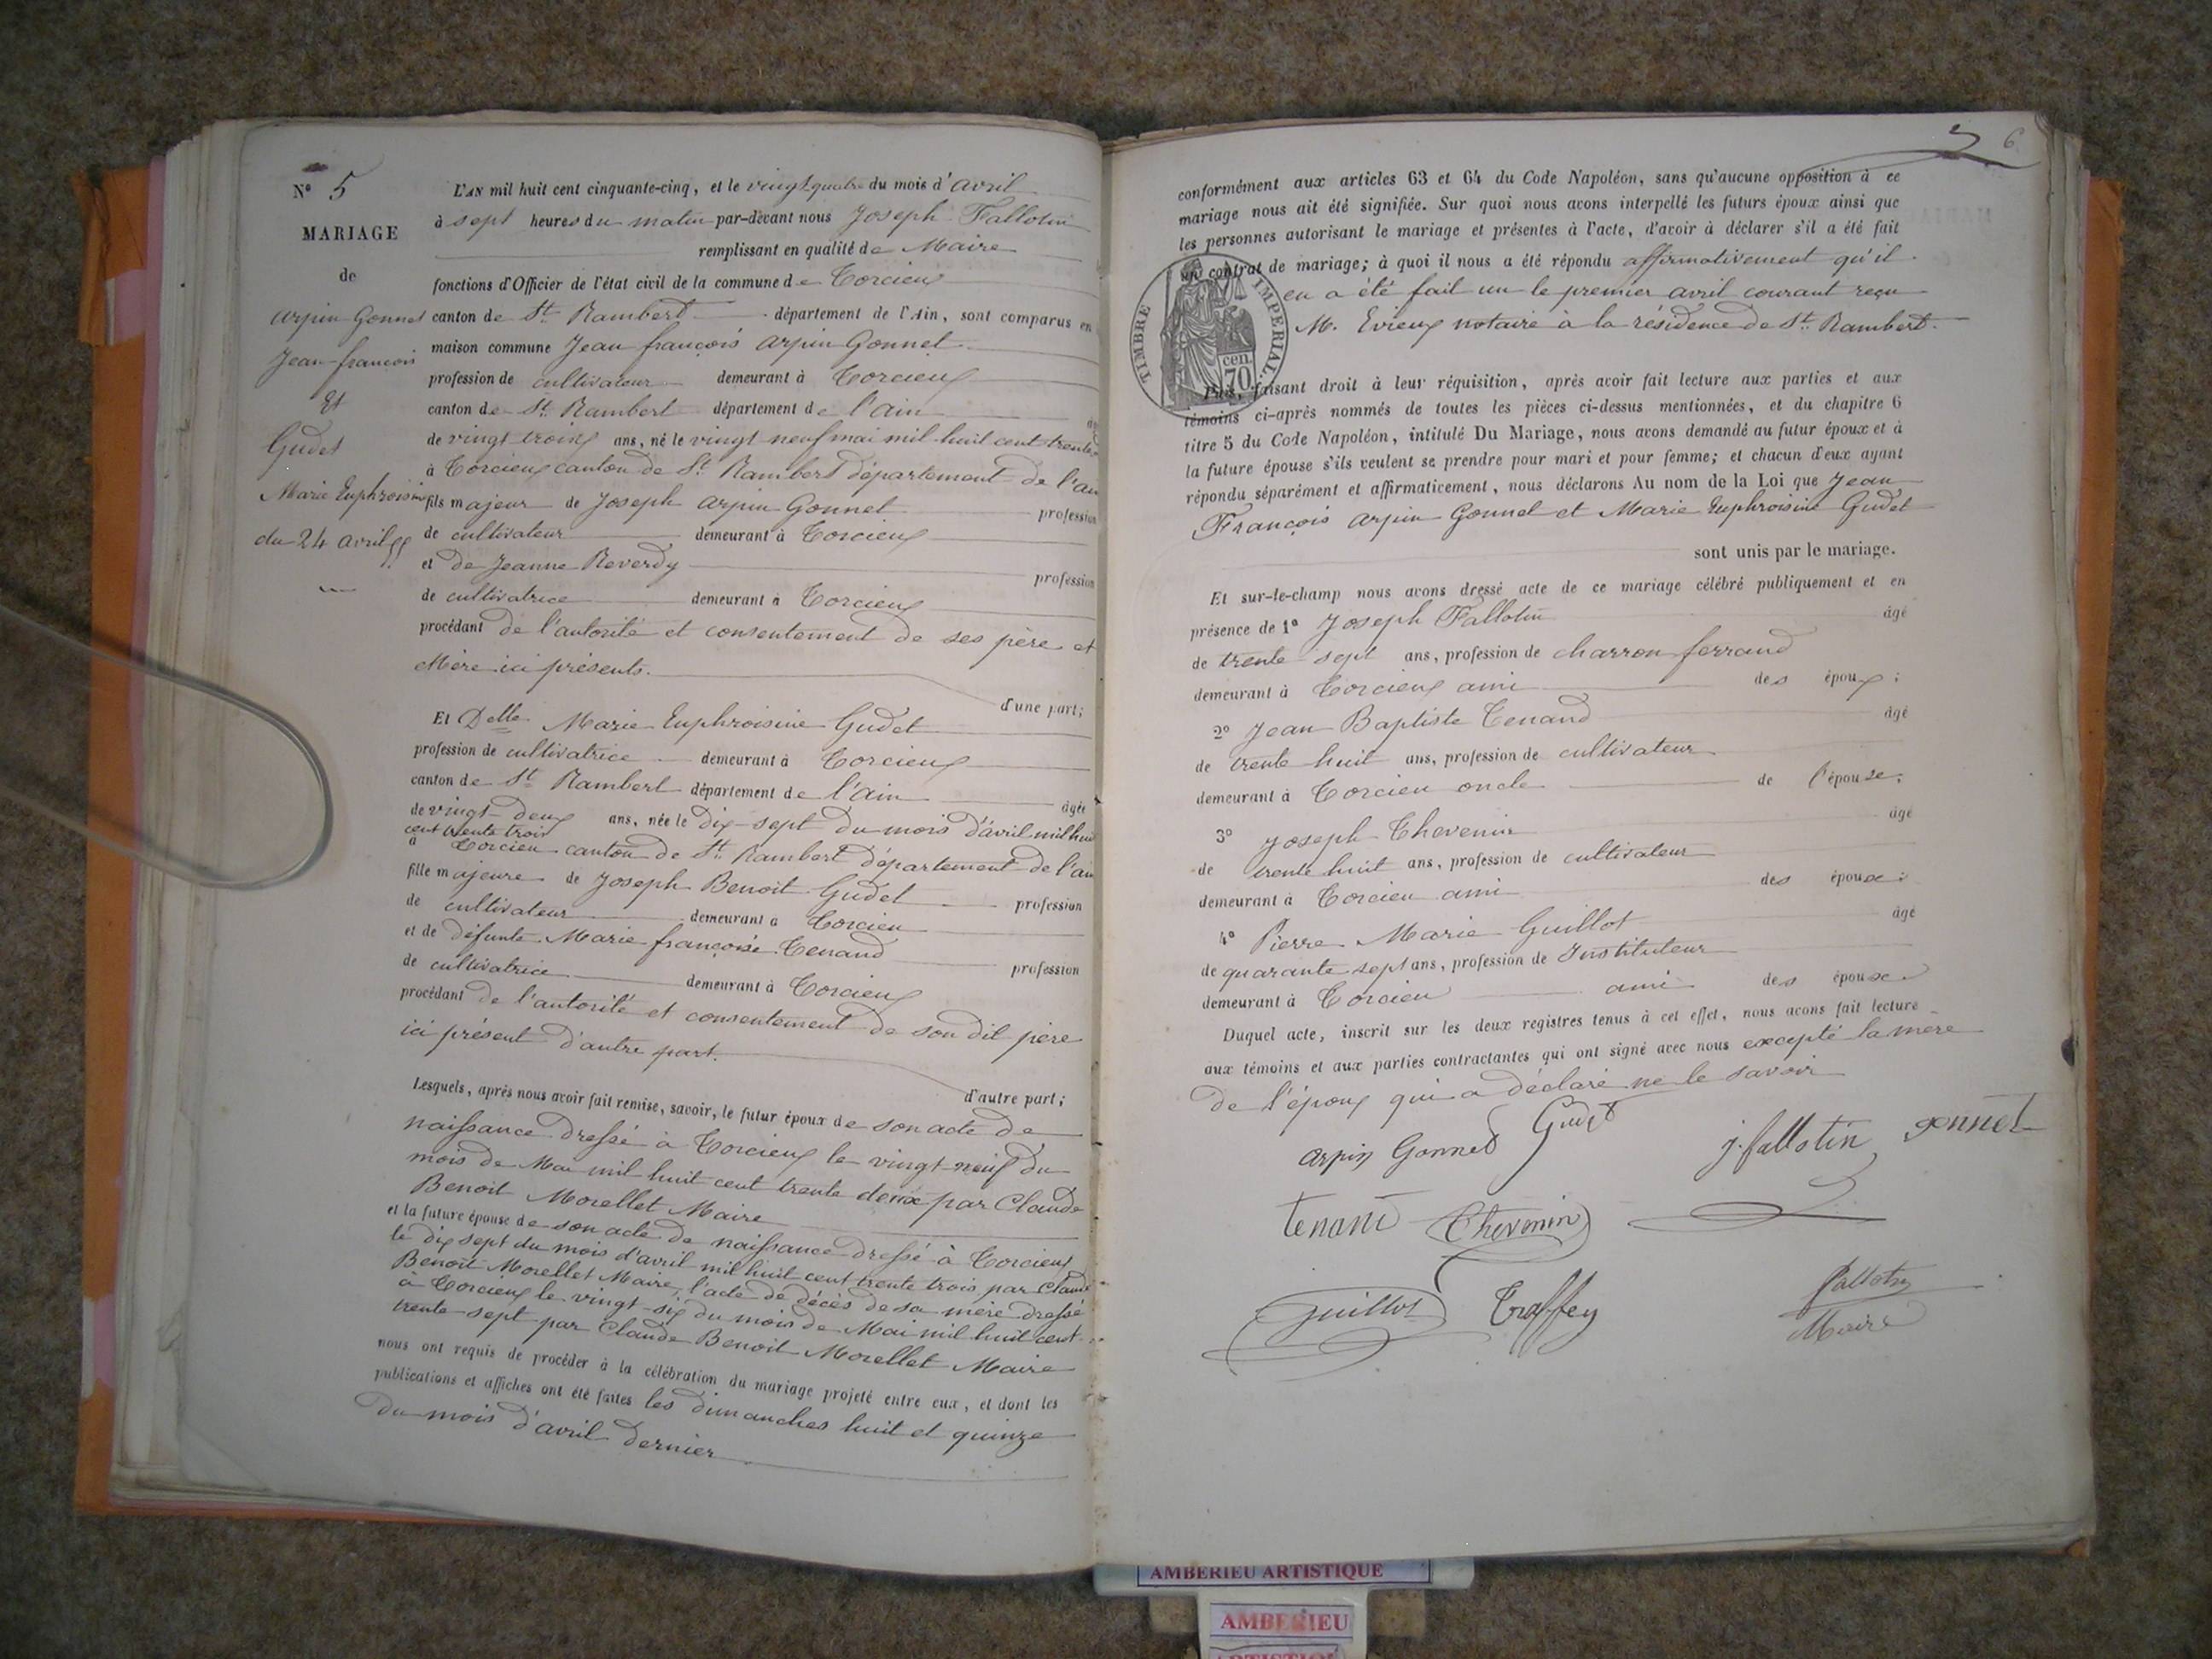 Nº 5
MARIAGE
de
Arpin Gonnet
Jean françois
Et
Gudet
Marie Euphroisine
du 24 avril 55
L'AN mil huit cent cinquante-cinq, et le vingt quatre du mois d'avril
à sept heures du matin par-devant nous Joseph Fallotin
remplissant en qualité de Maire
fonctions d'Officier de l'état civil de la commune de Torcieux
canton de St. Rambert département de l'Ain, sont comparus en
maison commune Jean françois Arpin Gonnet
profession de cultivateur demeurant à Torcieux
canton de St. Rambert département de l'ain
de vingt trois ans, né le vingt neuf mai mil huit cent trente
à Torcieux canton de St. Rambert département de l'ain
fils majeur de Joseph Arpin Gonnet profession
de cultivateur demeurant à Torcieux
et de Jeanne Reverdy profession
de cultivatrice demeurant à Torcieux
procédant de l'autorité et consentement de ses père et
Mère ici présents.
d'une part;
Et Delle Marie Euphroisine Gudet
profession de cultivatrice demeurant à Torcieux
canton de St Rambert département de l'ain âgée
de vingt-deux ans, née le dix-sept du mois d'avril mil huit
cent trente trois
à Torcieu canton de St. Rambert département de l'ain
fille majeure de Joseph Benoit Gudet profession
de cultivateur demeurant à Torcieu
et de défunte Marie françoise Tenand profession
de cultivatrice demeurant à Torcieux
procédant de l'autorité et consentement de son dit père
ici présent d'autre part.
d'autre part;
Lesquels, après nous avoir fait remise, savoir, le futur époux de son acte de
naissance dressé à Torcieux le vingt-neuf du
mois de Mai mil huit cent trente deux par Claude
Benoit Morellet Maire
et la future épouse de son acte de naissance dressé à Torcieux
le dix sept du mois d'avril mil huit cent trente trois par Claude
Benoit Morellet Maire, l'acte de décès de sa mère dressé
à Torcieux le vingt-six du mois de Mai mil huit cent
trente-sept par Claude Benoit Morellet Maire
nous ont requis de procéder à la célébration du mariage projeté entre eux, et dont les
publications et affiches ont été faites les dimanches huit et quinze
du mois d'avril dernier
6
conformément aux articles 63 et 64 du Code Napoléon, sans qu'aucune opposition à ce
mariage nous ait été signifiée. Sur quoi nous avons interpellé les futurs époux ainsi que
les personnes autorisant le mariage et présentes à l'acte, d'avoir à déclarer s'il a été fait
un contrat de mariage; à quoi il nous a été répondu affirmativement qu'il
en a été fait un le premier avril courant reçu
M. Evieux notaire à la résidence de St. Rambert.
TIMBRE IMPERIAL
cen. 70
Puis, faisant droit à leur réquisition, après avoir fait lecture aux parties et aux
témoins ci-après nommés de toutes les pièces ci-dessus mentionnées, et du chapitre 6
titre 5 du Code Napoléon, intitulé Du Mariage, nous avons demandé au futur époux et à
la future épouse s'ils veulent se prendre pour mari et pour femme; et chacun d'eux ayant
répondu séparément et affirmaticement, nous déclarons Au nom de la Loi que Jean
François Arpin Gonnet et Marie Euphroisine Gudet
sont unis par le mariage.
Et sur-le-champ nous avons dressé acte de ce mariage célébré publiquement et en
présence de 1º Joseph Fallotin âgé
de trente sept ans, profession de charron ferrand
demeurant à Torcieux ami des époux;
2º Jean Baptiste Tenand âgé
de trente huit ans, profession de cultivateur
demeurant à Torcieu oncle de l'épouse;
3º Joseph Thevenin âgé
de trente huit ans, profession de cultivateur
demeurant à Torcieu ami des épouse;
4º Pierre Marie Guillot âgé
de quarante sept ans, profession de Instituteur
demeurant à Torcieu ami des épouse
Duquel acte, inscrit sur les deux registres tenus à cet effet, nous avons fait lecture
aux témoins et aux parties contractantes qui ont signé avec nous excepté la mère
de l'époux qui a déclaré ne le savoir
Arpin Gonnet Gudet j. fallotin gonnet
tenand Thevenin
Guillot Traffey Fallotin
Maire
AMBERIEU ARTISTIQUE
AMBERIEU
ARTISTIQUE